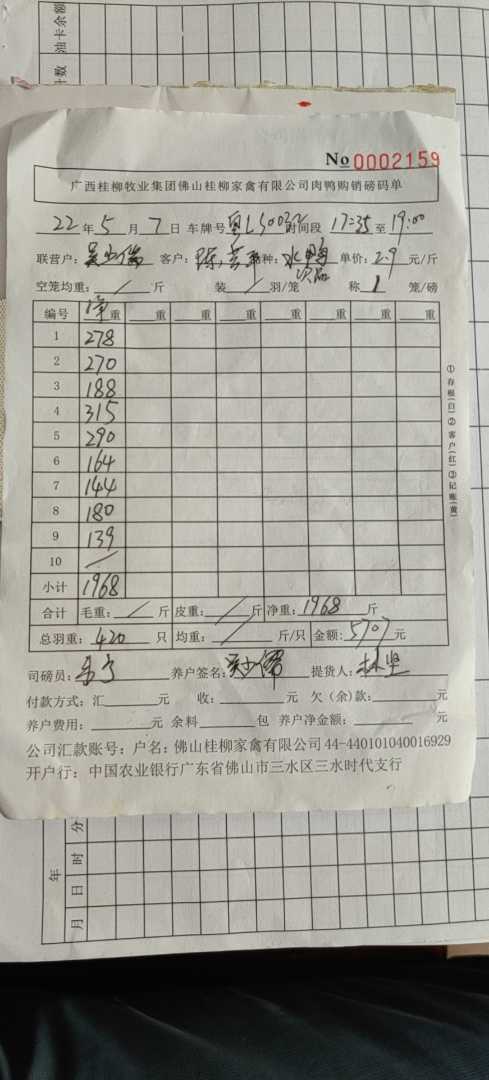 油卡余额
No 0002159
广西桂柳牧业集团佛山桂柳家禽有限公司肉鸭购销磅码单
22年5月7日 车牌号 时间段 17:35至19:00
联营户: 客户: 种: 水鸭 单价: 2.9元/斤
次品
空笼均重: / 斤 装 / 羽/笼 称 1 笼/磅
编号 净重 重 重 重 重 重 重 重
1 278
2 270
3 188
4 315
5 290
6 164
7 144
8 180
9 139
10 /
小计 1968
合计 毛重: / 斤 皮重: / 斤 净重: 1968 斤
总羽重: 420 只 均重: / 斤/只 金额: 5707元
司磅员: 养户签名: 提货人:
付款方式: 汇 元 收: 元 欠(余)款: 元
养户费用: 元 余料 包 养户净金额: 元
公司汇款账号: 户名: 佛山桂柳家禽有限公司 44-440101040016929
开户行: 中国农业银行广东省佛山市三水区三水时代支行
①存根(白)②客户(红)③记账(黄)
年
月 日 时 分